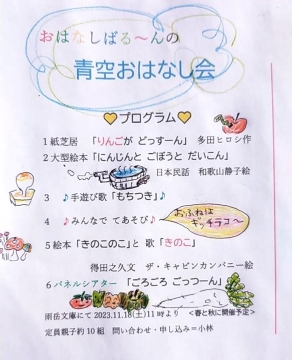 おはなしばる～んの
青空おはなし会
プログラム
1 紙芝居 「りんごが どっすーん」 多田ヒロシ作
2 大型絵本「にんじんと ごぼうと だいこん」
日本民話 和歌山静子絵
3 ♪手遊び歌「もちつき」♪
4 ♪みんなで てあそび♪
おふねは
ギッチラコ～
5 絵本「きのこのこ」と 歌「きのこ」
得田之久文 ザ・キャビンカンパニー絵
6 パネルシアター 「ごろごろ ごっつーん」
雨岳文庫にて 2023.11.18(土)11時より <春と秋に開催予定>
定員親子約10組 問い合わせ・申し込み＝小林